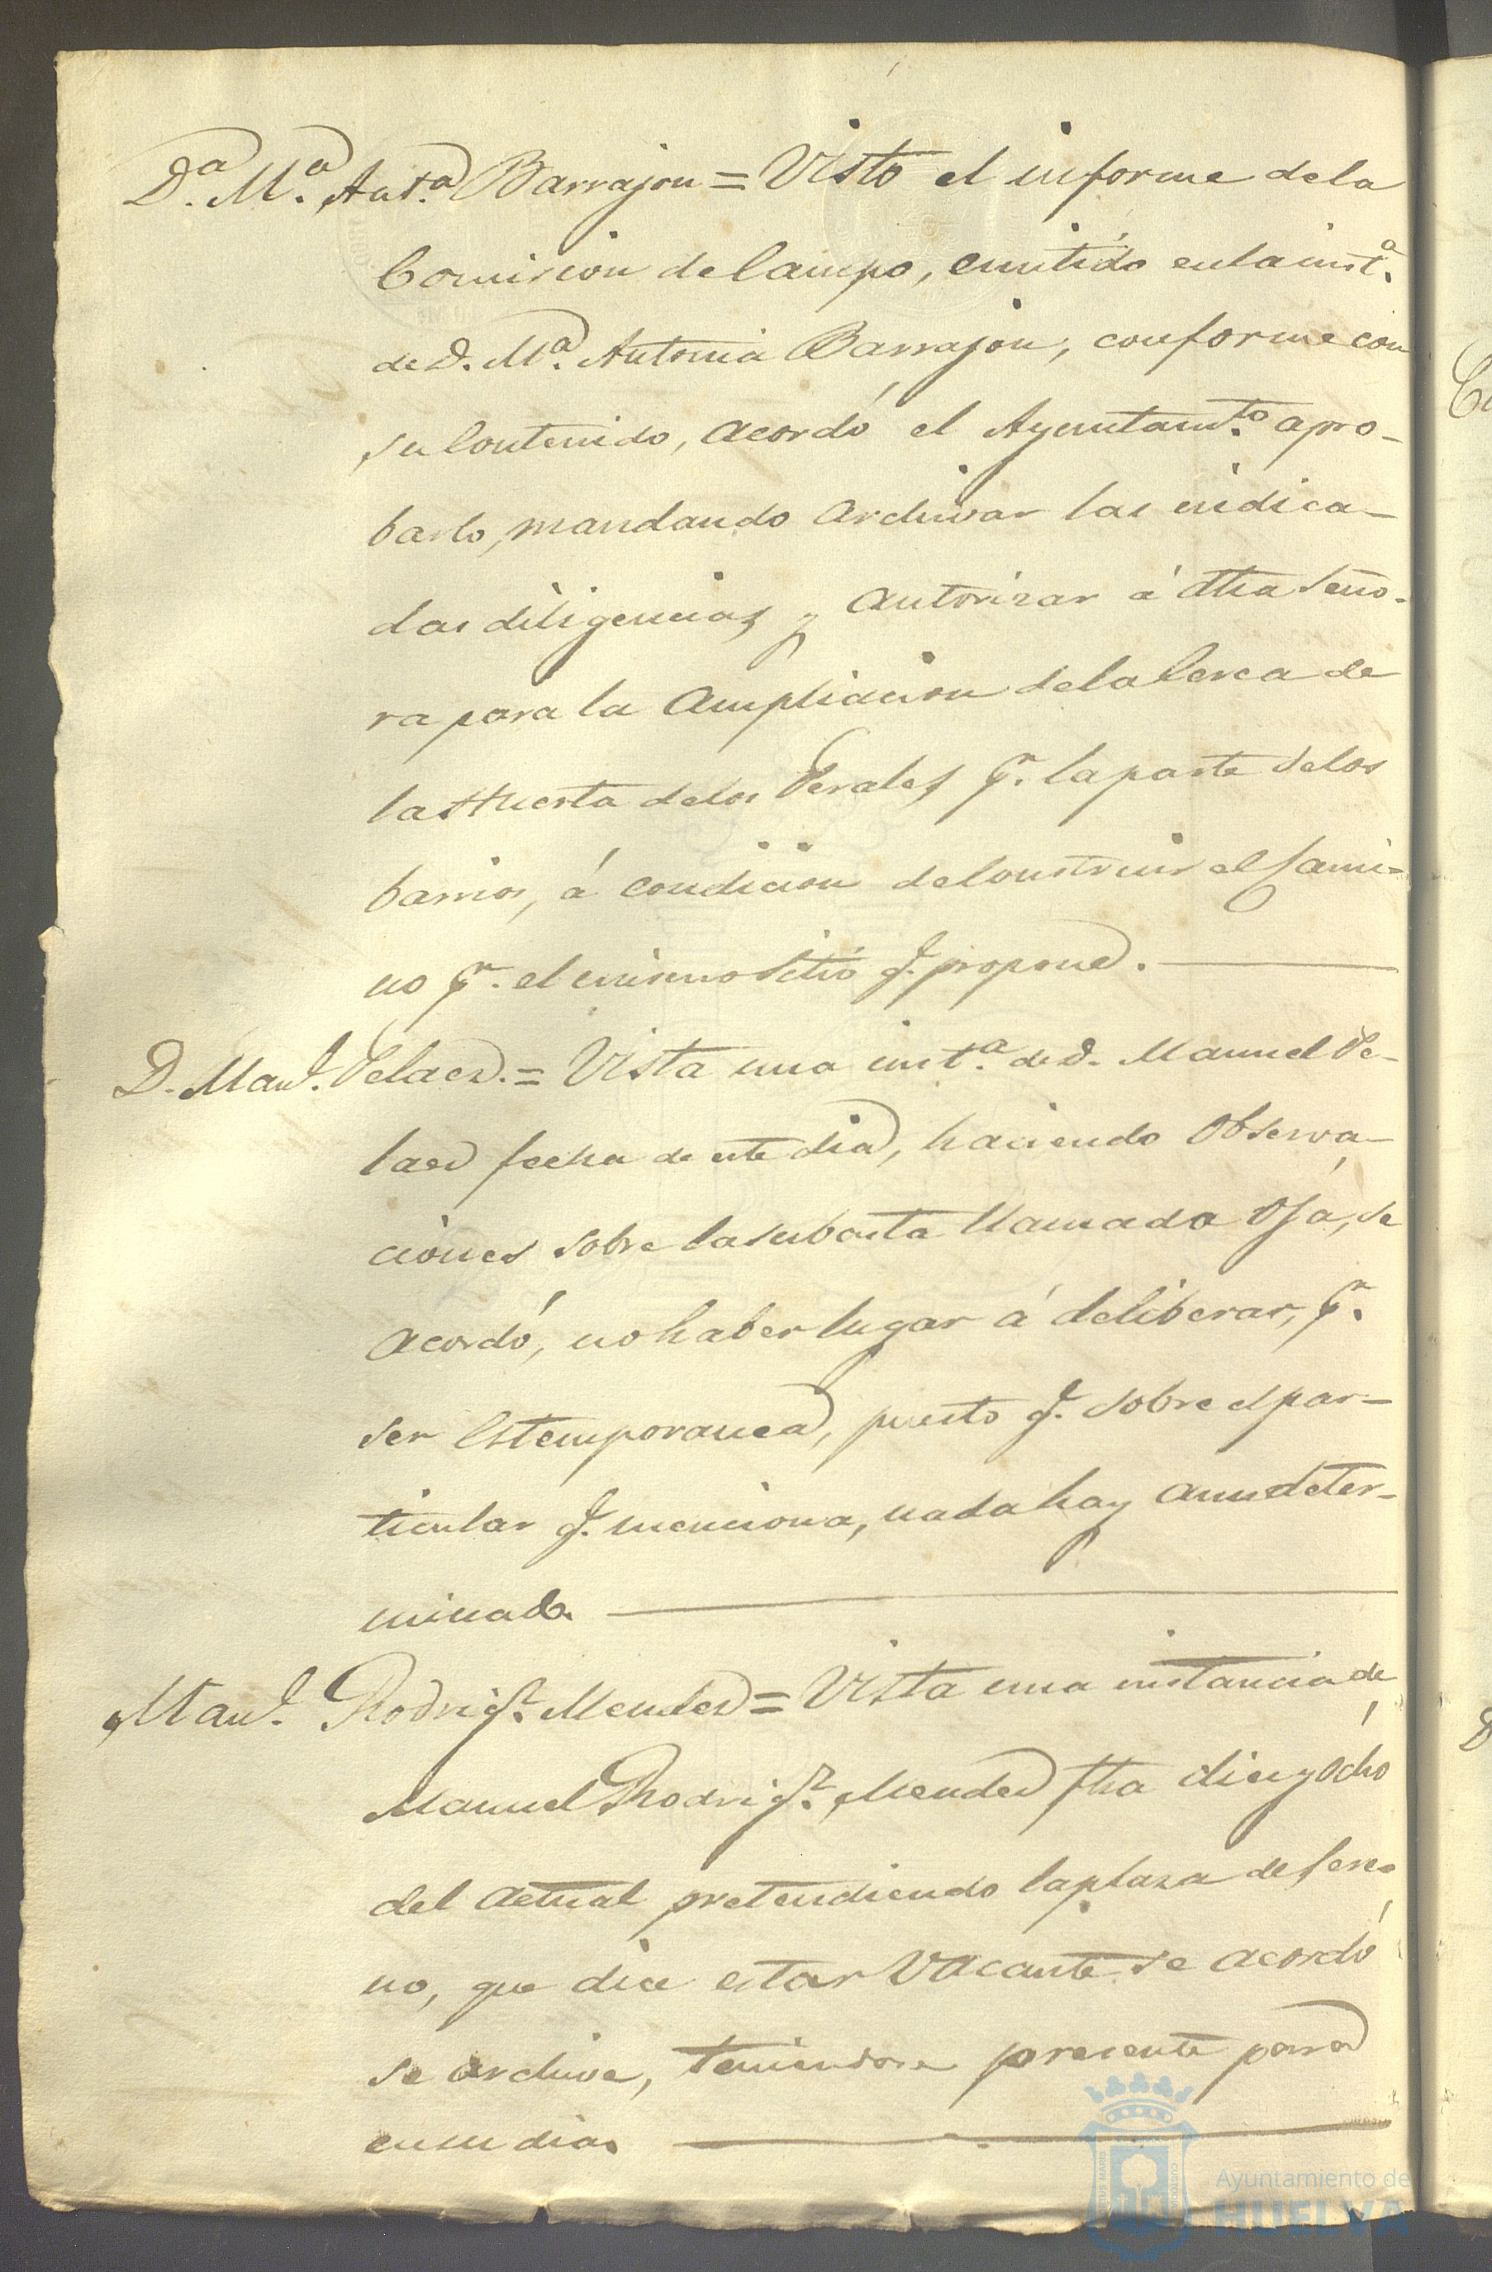 D.ª M.ª Ant.ª Barrajon = Visto el informe de la
Comision de Campo, emitido en la inst.ª
de D. M.ª Antonia Barrajon, conforme con
su Contenido, acordó el Ayuntam.to apro-
barlo, mandando archivar las indica-
das diligencias y autorizar á dha Seño-
ra para la ampliacion de la Cerca de
la Huerta de los Perales p.r la parte de los
barrios, á condicion de Construir el Cami-
no p.r el mismo Sitio q. propone.
D. Man.l Pelaez. = Vista una inst.ª de D. Manuel Pe-
laez fecha de este dia, haciendo Observa-
ciones sobre la subasta llamada
acordó, no haber lugar á deliberar, p.r
ser Estemporanea, puesto q. sobre el par-
ticular q. menciona, nada hay aun deter-
minado.
Man.l Rodrig.z Mendez = Vista una instancia de
Manuel Rodrig.z Mendez fha diez y ocho
del actual pretendiendo la plaza de Sere-
no, que dice estar Vacante se acordó
se archive, teniendose presente para
en su dia.
Ayuntamiento de
HUELVA